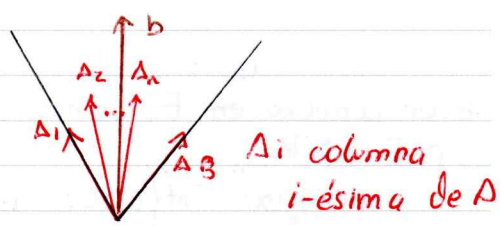 b
A2 ... An
A1
A3
Ai columna
i-ésima de A